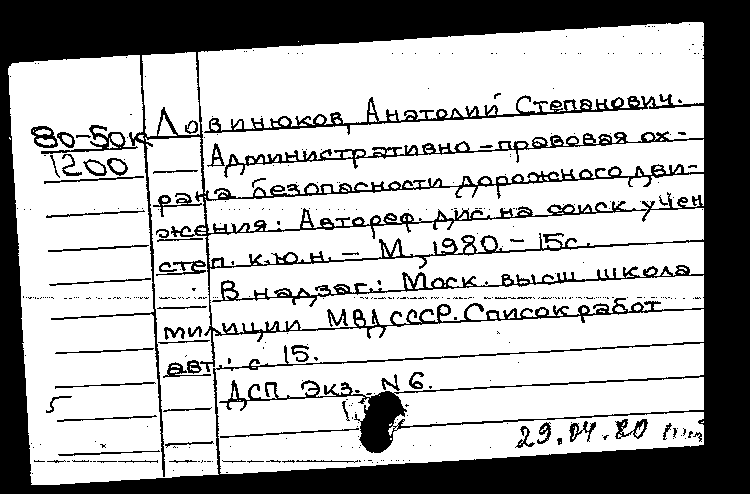 80-50к
1200
Ловинюков, Анатолий Степанович.
Административно-правовая ох-
рана безопасности дорожного дви-
жения: Автореф. дис. на соиск учен
степ. к.ю.н. - М., 1980. - 15с.
В надзаг.: Моск. высш школа
милиции МВД СССР. Список работ
авт.: с. 15.
ДСП. Экз. N 6.
5
29.04.80